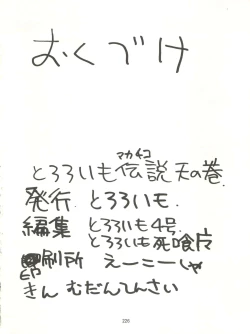 おくづけ
マカチコ
とろろいも伝説 天の巻.
発行. とろろいモ.
編集 とろろいも4号.
とろろいも死喰片
印刷所 えーこーしゃ
きん むだんてんさい
226